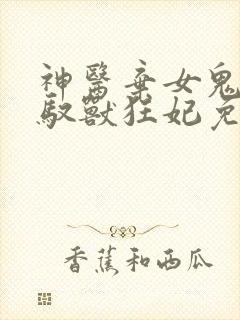 神醫棄女鬼
馭獸狂妃免
香蕉和西瓜